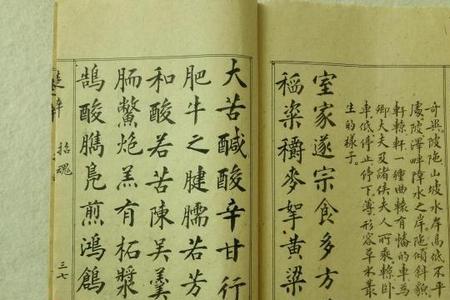 奇異陂陁山坡水岸高低不平
處陂澤畔障水之岸陁傾斜貌
軒輬軒一種曲輈有幡的車為
卿大夫及諸侯夫人所乘輬卧
車低停止停下薄形容草木叢
生的樣子
室家遂宗食多方
稻粢穱麥挐黃粱
大苦醎酸辛甘行
肥牛之腱臑若芳
和酸若苦陳吳羹
胹鱉炮羔有柘漿
鵠酸臇鳧煎鴻鶬
招魂
三七